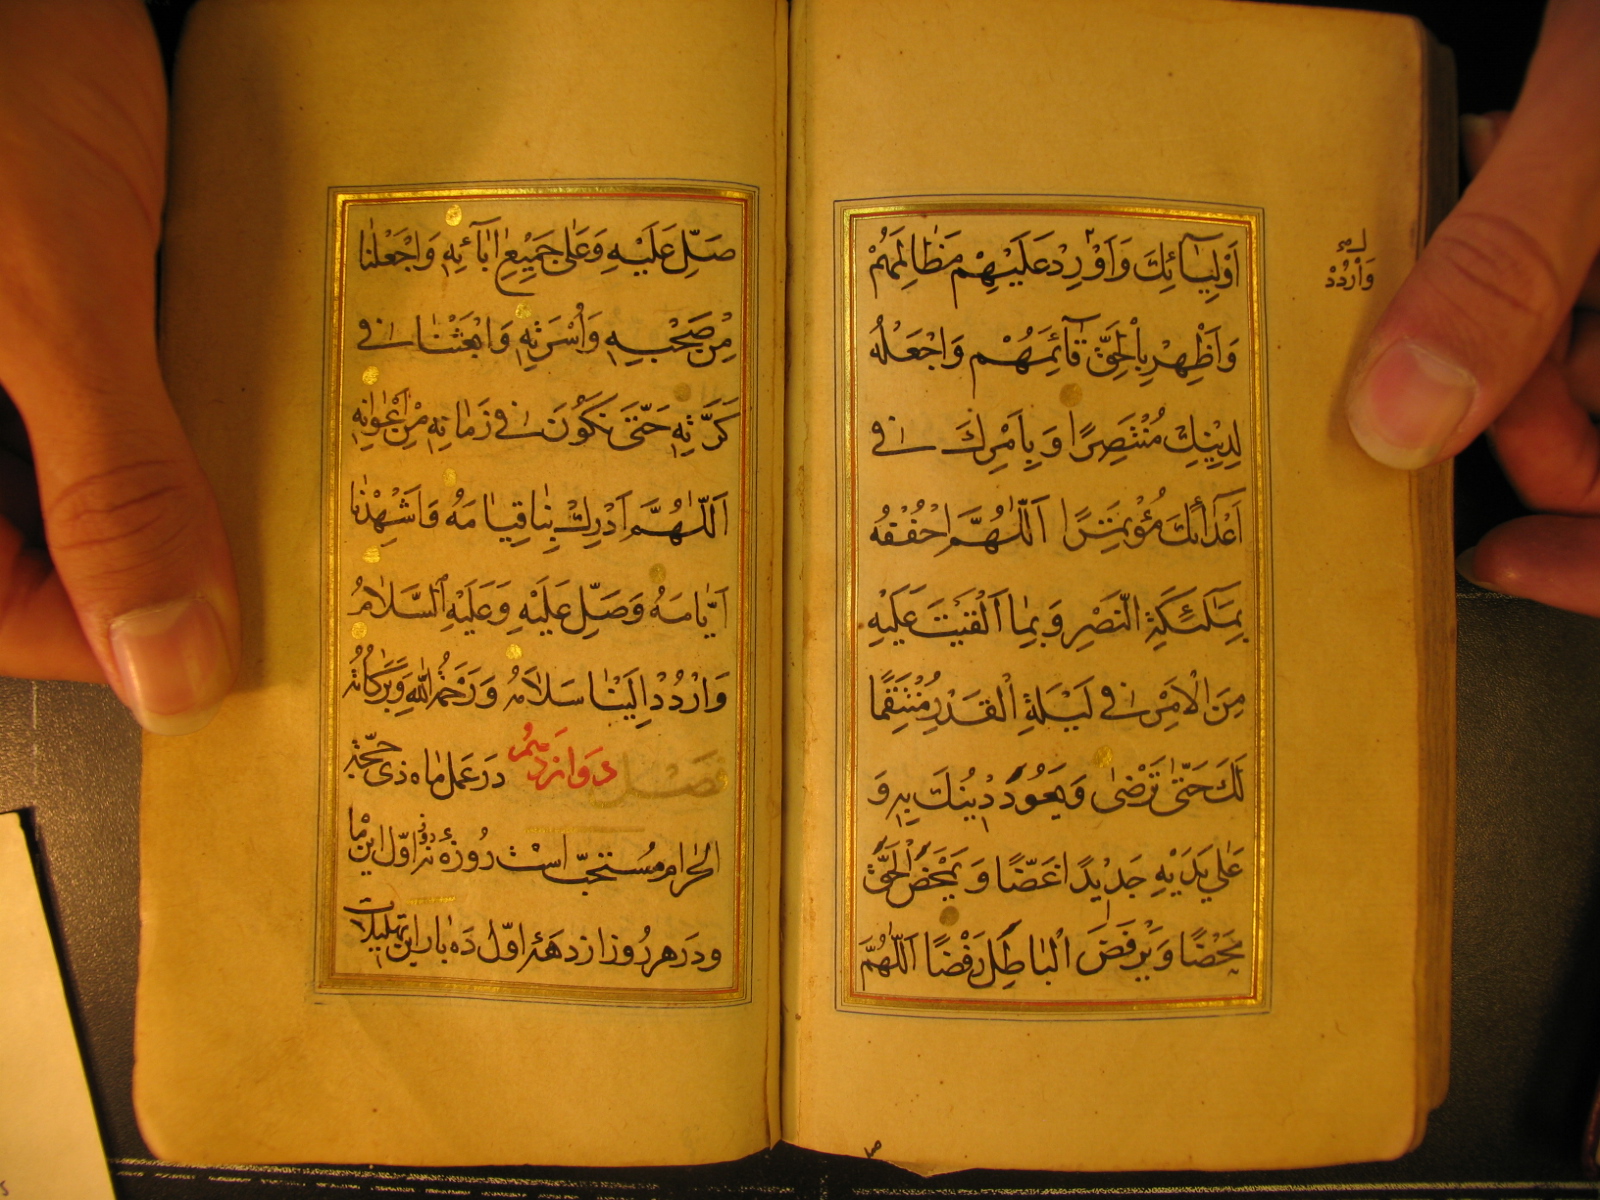 اَوْلِيَآئِكَ وَاَوْرِدْ عَلَيْهِمْ مَظَالِمَهُمْ
وَارْدُدْ
وَاَظْهِرْ بِالْحَقِّ قَآئِمَهُمْ وَاجْعَلْهُ
لِدِيْنِكَ مُنْتَصِرًا وَبِاَمْرِكَ فِى
اَعْدَائِكَ مُؤْتَمِرًا اَللّٰهُمَّ احْفُفْهُ
بِمَلٰئِكَةِ النَّصْرِ وَبِمَا اَلْقَيْتَ عَلَيْهِ
مِنَ الْاَمْرِ فِى لَيْلَةِ الْقَدْرِ مُنْتَقِمًا
لَكَ حَتّٰى تَرْضٰى وَيَعُوْدَ دِيْنُكَ بِهِ وَ
عَلٰى يَدَيْهِ جَدِيْدًا غَضًّا وَيَمْحَضَ الْحَقَّ
مَحْضًا وَيَرْفَضَ الْبَاطِلَ رَفْضًا اَللّٰهُمَّ
صَلِّ عَلَيْهِ وَعَلٰى جَمِيْعِ اٰبَآئِهِ وَاجْعَلْنَا
مِنْ صَحْبِهِ وَاُسْرَتِهِ وَابْعَثْنَا فِى
كَرَّتِهِ حَتّٰى نَكُوْنَ فِى زَمَانِهِ مِنْ اَعْوَانِهِ
اَللّٰهُمَّ اَدْرِكْ بِنَا قِيَامَهُ وَاَشْهِدْنَا
اَيَّامَهُ وَصَلِّ عَلَيْهِ وَعَلَيْهِ السَّلَامُ
وَارْدُدْ اِلَيْنَا سَلَامَهُ وَرَحْمَةُ اللّٰهِ وَبَرَكَاتُهُ
فَصْل دوازدهم در عمل ماه ذى حجّة
الحرام مستحبّ است روزهٔ نه روز اوّل اين ماه
ودر هر روز از دههٔ اوّل ده بار اين تهليلات